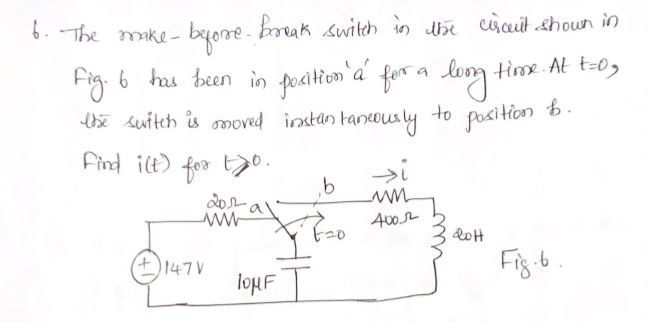 6. The make-before-break switch in the circuit shown in
Fig. 6 has been in position 'a' for a long time. At t=0,
the switch is moved instantaneously to position b.
Find i(t) for t≥0.
→i
b
20Ω a
400Ω
t=0
20H
+
-
147V
10μF
Fig.6.